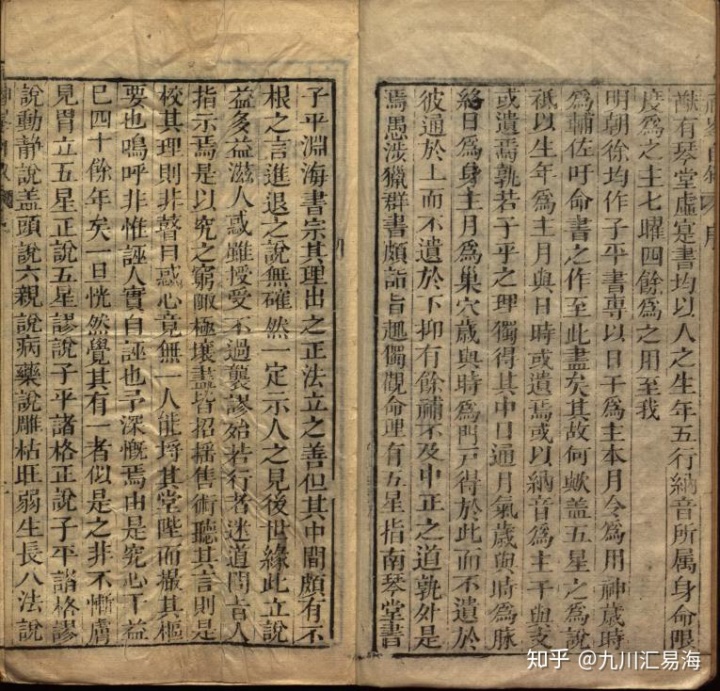 猷有琴堂虛寔書均以人之生年五行納音所属身命限
度爲之主七曜四餘爲之用至我
明朝徐均作子平書專以日干爲主本月令爲用神歲時
爲輔佐吁命書之作至此盡矣其故何蚇盖五星之爲說
祇以生年爲主月與日時或遺焉或以納音爲主干與支
或遺焉孰若子平之理獨得其中日通月氣歲與時爲脉
絡日爲身主月爲巢穴歲與時爲門戸得於此而不遺於
彼通於上而不遺於下抑有餘補不及中正之道孰外是
焉愚涉獵群書頗詣旨趣獨觀命理有五星指南琴堂書
子平淵海書宗其理出之正法立之善但其中間頗有不
根之言進退之說無確然一定示人之見後世緣此立說
益多益滋人惑雖授受不過襲謬殆若行者迷道問盲人
指示焉是以究之窮敵極壤盡皆招搖售術聽其言則是
校其理則非瞽目惑心竟無一人能埒其堂陛而撮其樞
要也嗚呼非惟誣人實自誣也予深慨焉由是究心于益
巳四十餘年矣一旦恍然覺其有一者似是之非不慚膚
見胃立五星正說五星謬說子平諸格正說子平諸格謬
說動静說盖頭說六親說病藥說雕枯旺弱生長八法說
知乎 @九川汇易海